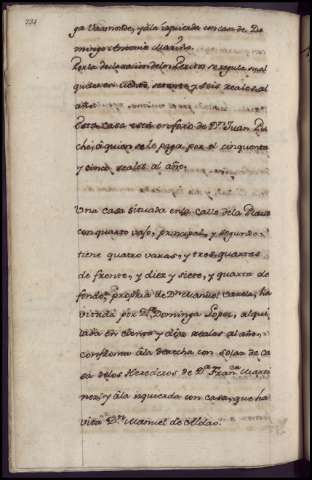 ga Varmonde, y á la izquierda con casa de Do-
mingo Antonio Mariño.
Por la declaracion delos Peritos se regula en al-
quiler en ciento, setenta, y seis reales al
año.
Esta Casa está en foro de Dn. Juan Pu-
che, á quien se le paga, por el cinquenta
y cinco reales al año.
Una casa situada en la calle dela Plaza
con quarto vajo, principal, y segundo:
tiene quatro varas, y tres quartas
de frente, y diez y siete, y quarta de
fondo: propria de Dn. Manuel Varela, ha-
vitada por Da. Dominga Lopez, alqui-
lada en ciento y reales al año,
confronta á la derecha con solar de ca-
sa delos Herederos de Dn. Franco. Marti-
nez, y á la izquierda con casa que ha-
vita Dn. Manuel de Aldao.